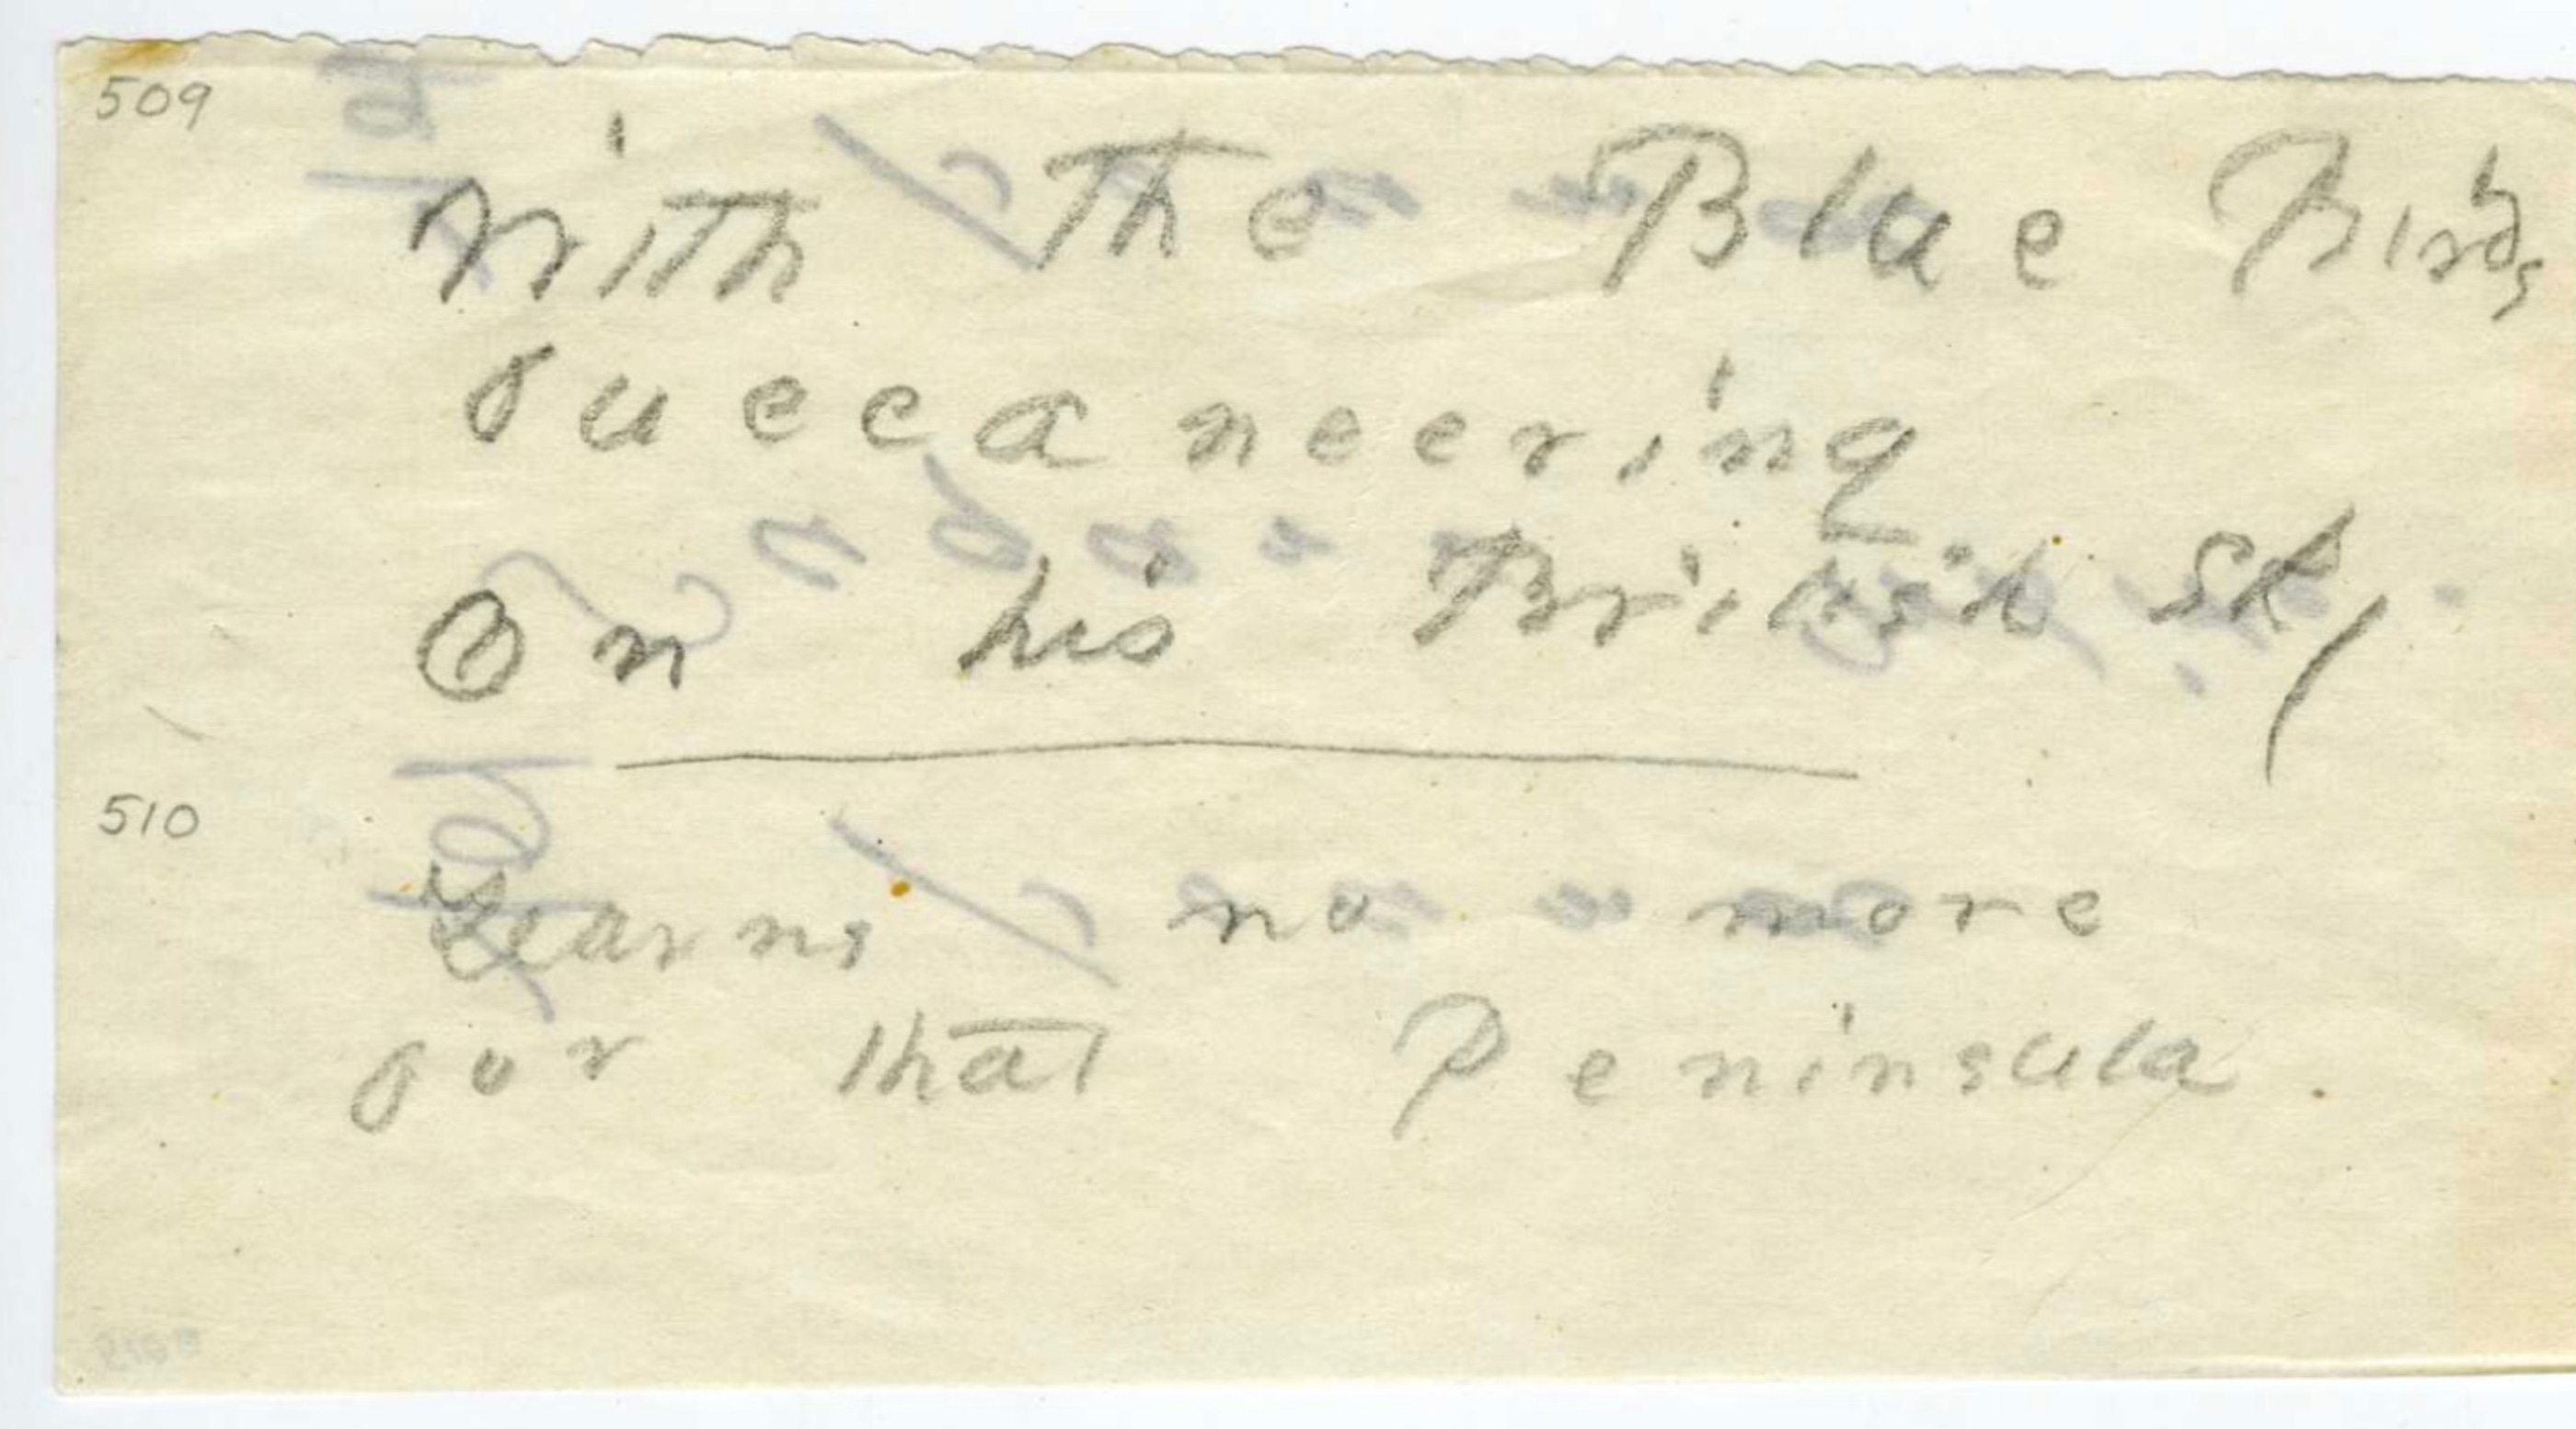 509
With the Blue Birds
buccaneering
On his British sky
510
Yearns no more
for that Peninsula.